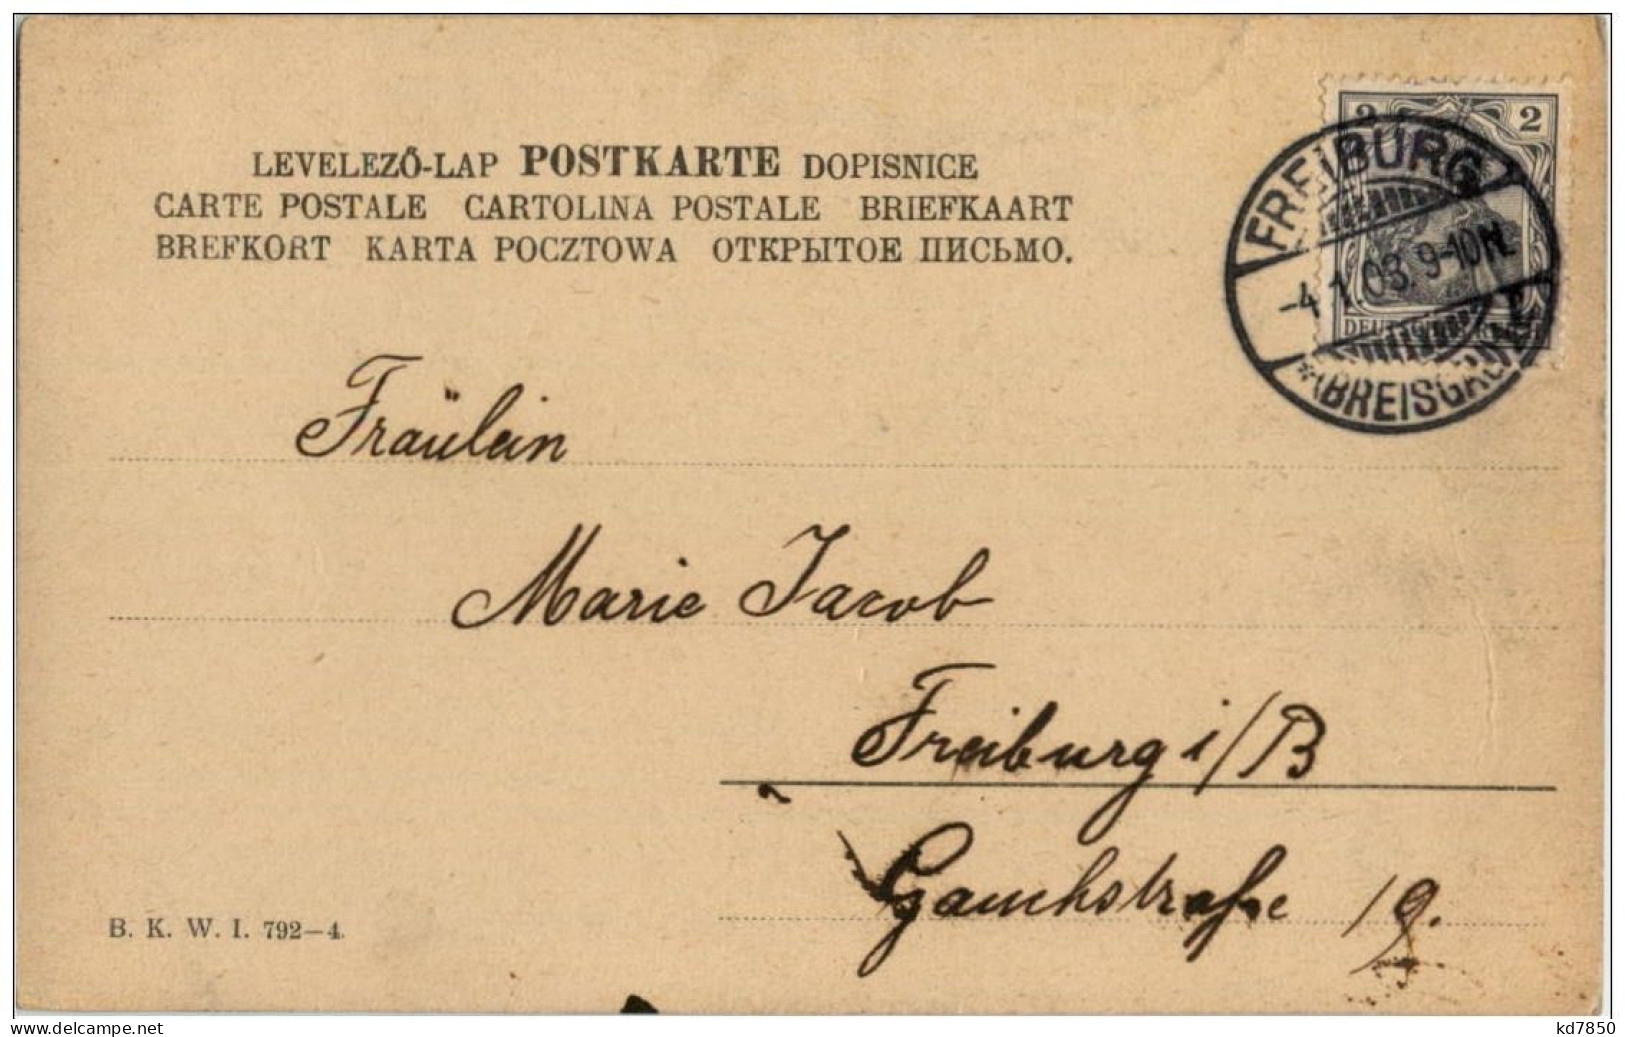 LEVELEZŐ-LAP POSTKARTE DOPISNICE
CARTE POSTALE CARTOLINA POSTALE BRIEFKAART
BREFKORT KARTA POCZTOWA ОТКРЫТОЕ ПИСЬМО.
2 2
DEUTSCHES REICH
FREIBURG
-4.1.03. 9-10N.
*(BREISGAU)
Fräulein
Marie Jacob
Freiburg i/B
Gauchstraße 19.
B. K. W. I. 792-4.
delcampe.net
kd7850